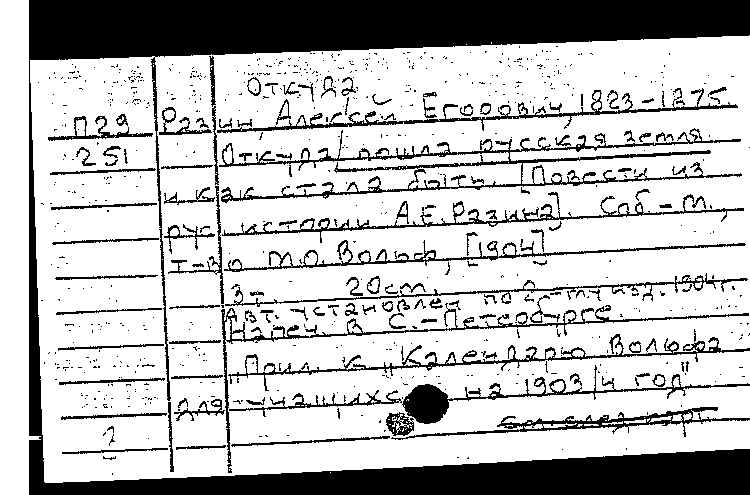 Откуда
П29 Разин, Алексей Егорович, 1823-1875.
251 Откуда пошла русская земля
и как стала быть. [Повести из
рус. истории А.Е.Разина]. Спб.-М.,
т-во М.О. Вольф, [1904]
3 т. 20 cm.
Авт. установлен по 2-му изд. 1904г.
Напеч. в С.-Петербурге.
"Прил. к "Календарю Вольфа
для учащихс на 1903/4 год"
2 см. след. карт.